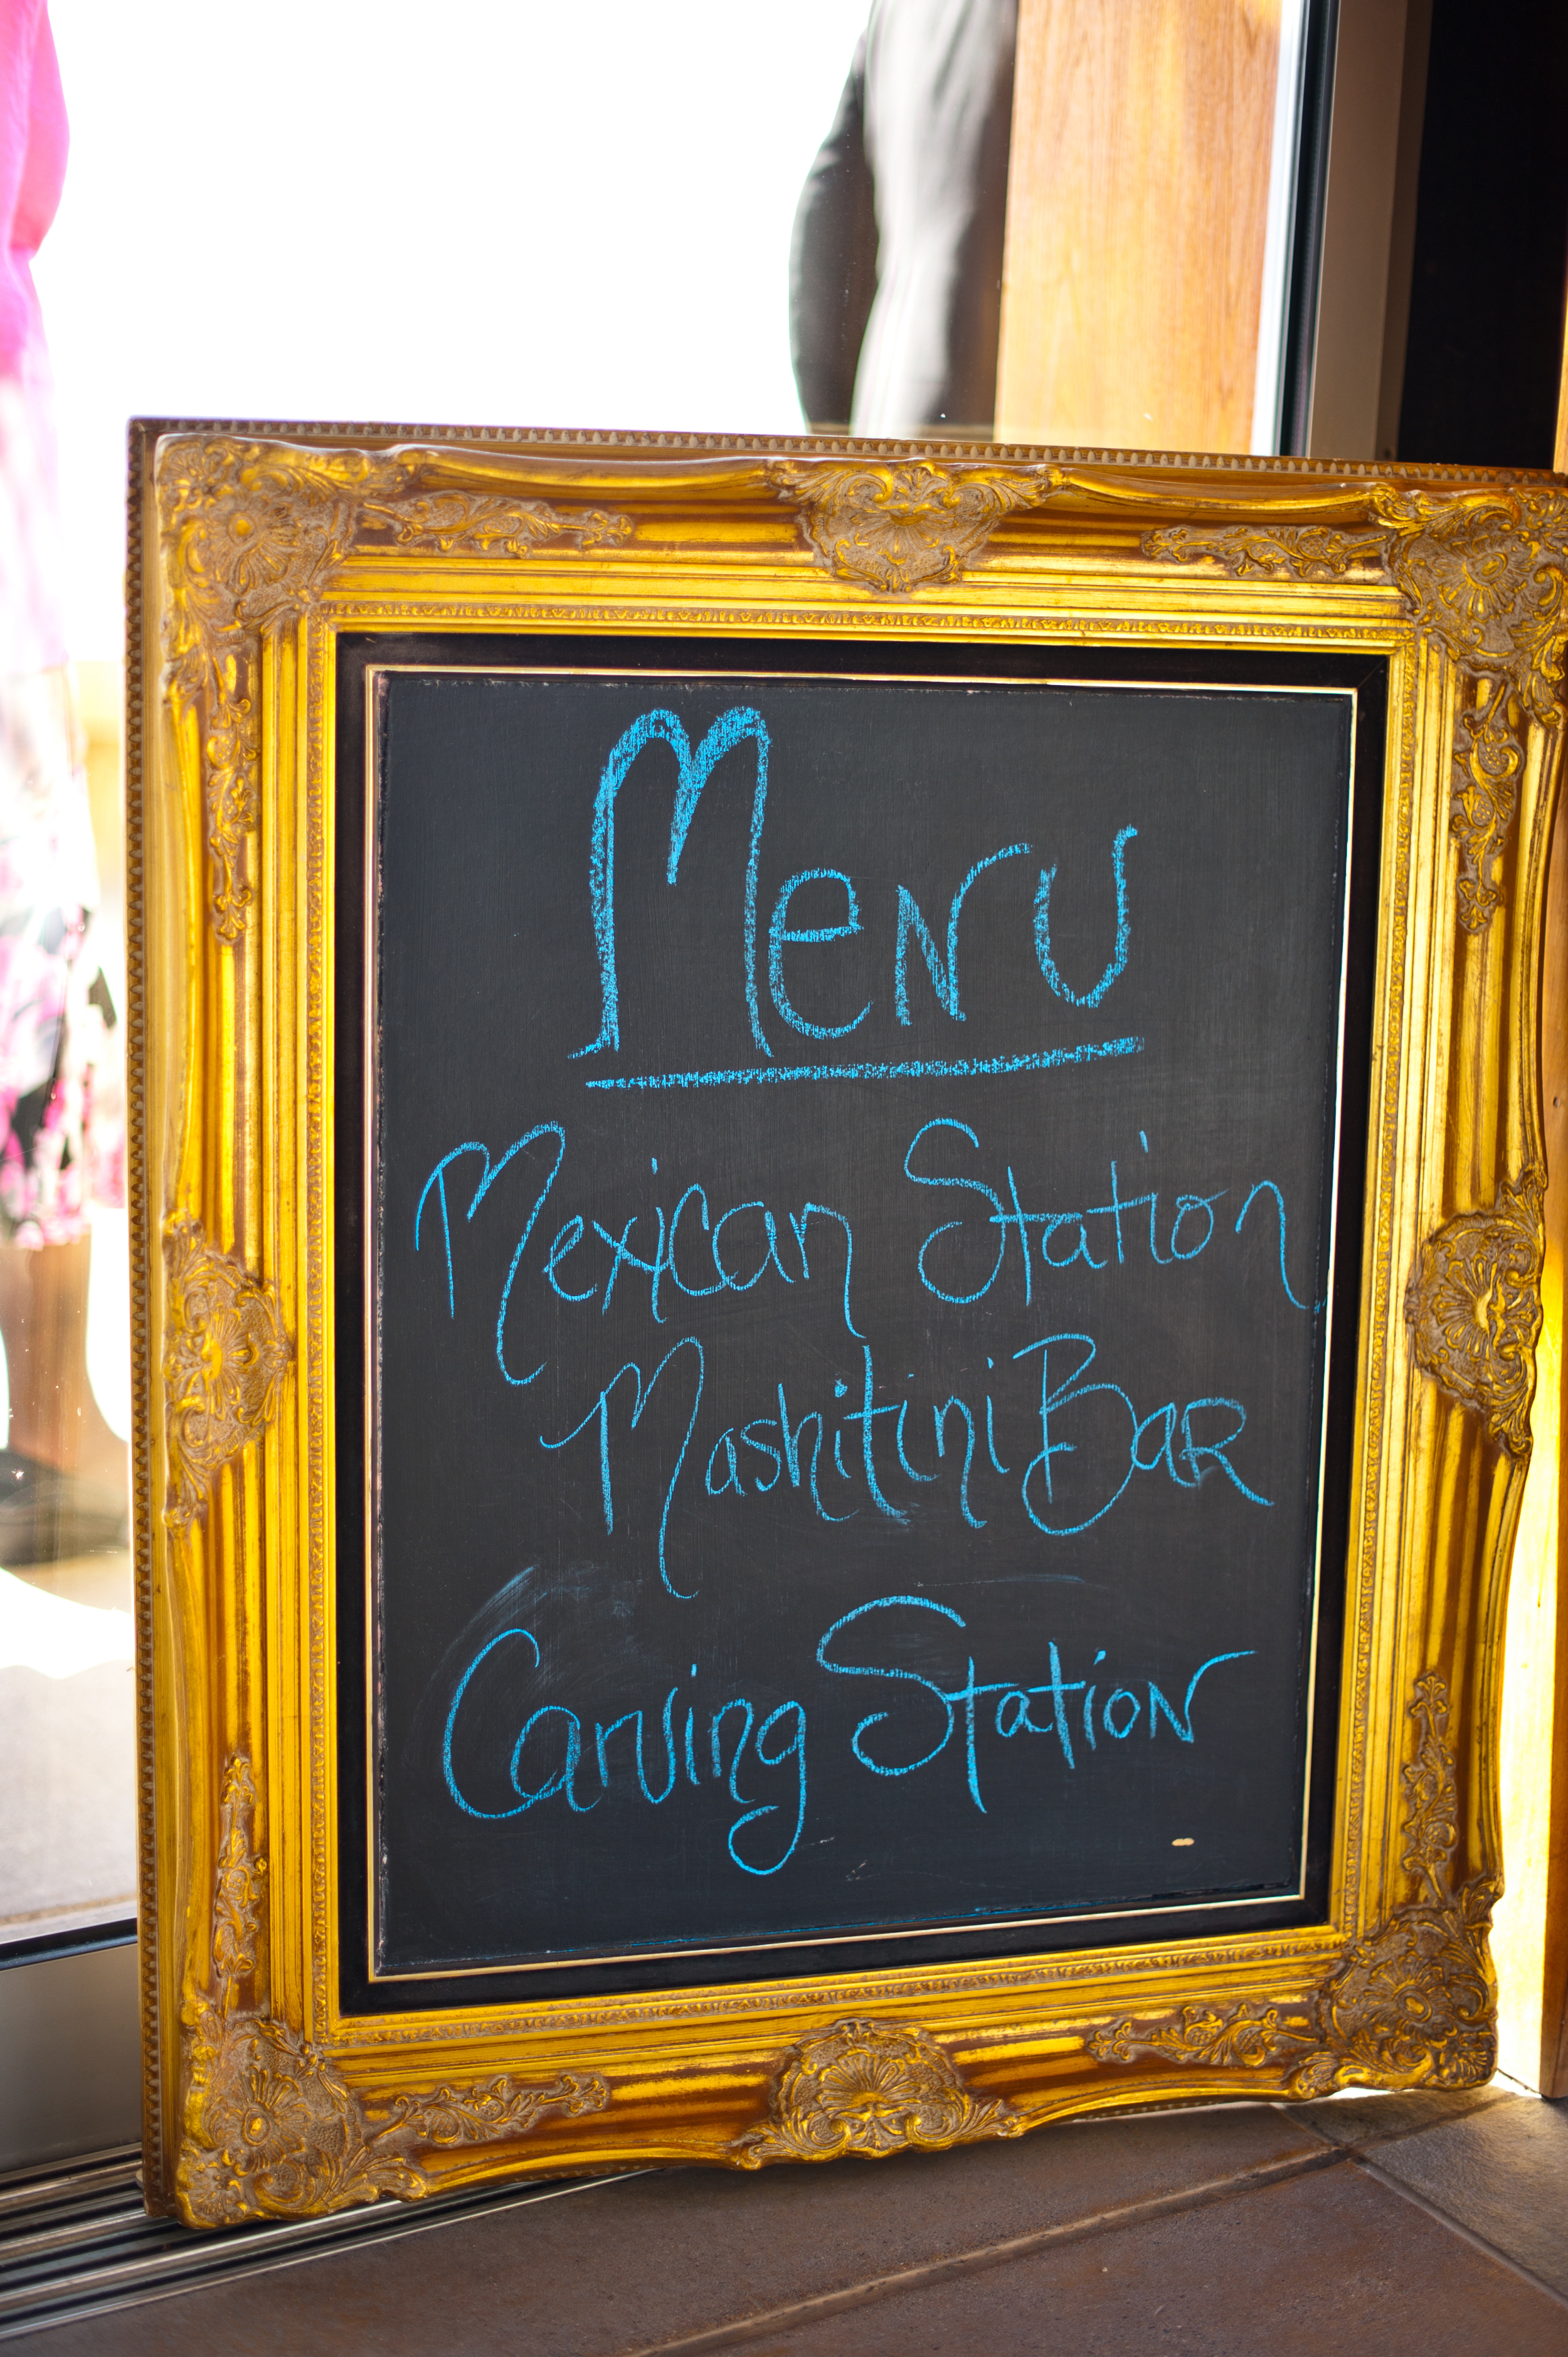 Menu
Mexican Station
Mashitini Bar
Carving Station